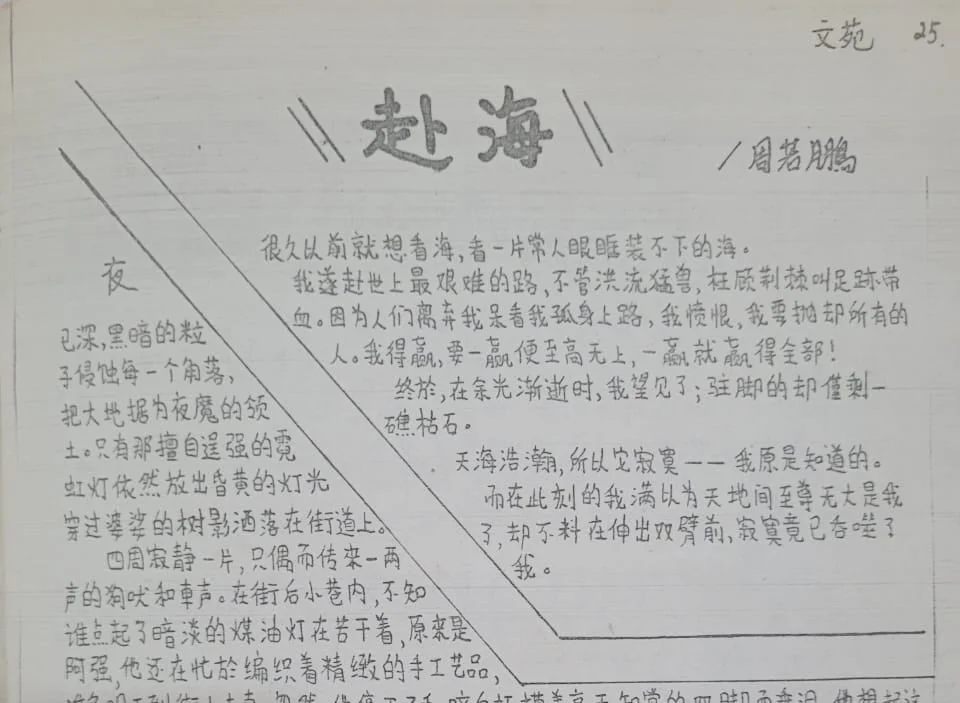 文苑 25.
赴海
/周若鹏
很久以前就想看海,看一片常人眼眶装不下的海。
我遂赴世上最艰难的路,不管洪流猛兽,枉顾荆棘叫足跡带
血。因为人们离弃我呆看我孤身上路,我愤恨,我要抛却所有的
人。我得赢,要一赢便至高无上,一赢就赢得全部!
终於,在余光渐逝时,我望见了;驻脚的却僅剩一
礁枯石。
天海浩瀚,所以它寂寞——我原是知道的。
而在此刻的我满以为天地间至尊无大是我
了,却不料在伸出双臂前,寂寞竟已吞噬了
我。
夜
已深,黑暗的粒
子侵蚀每一个角落,
把大地据为夜魔的领
土。只有那擅自逞强的霓
虹灯依然放出昏黄的灯光
穿过婆娑的树影洒落在街道上。
四周寂静一片,只偶而传来一两
声的狗吠和車声。在街后小巷内,不知
谁点起了暗淡的煤油灯在苦干着,原來是
阿强,他还在忙於编织着精緻的手工艺品,